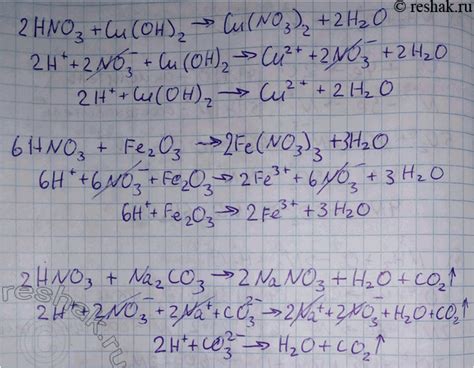 © reshak.ru
2HNO₃ + Cu(OH)₂ → Cu(NO₃)₂ + 2H₂O
2H⁺ + 2NO₃⁻ + Cu(OH)₂ → Cu²⁺ + 2NO₃⁻ + 2H₂O
2H⁺ + Cu(OH)₂ → Cu²⁺ + 2H₂O
6HNO₃ + Fe₂O₃ → 2Fe(NO₃)₃ + 3H₂O
6H⁺ + 6NO₃⁻ + Fe₂O₃ → 2Fe³⁺ + 6NO₃⁻ + 3H₂O
6H⁺ + Fe₂O₃ → 2Fe³⁺ + 3H₂O
2HNO₃ + Na₂CO₃ → 2NaNO₃ + H₂O + CO₂↑
2H⁺ + 2NO₃⁻ + 2Na⁺ + CO₃²⁻ → 2Na⁺ + 2NO₃⁻ + H₂O + CO₂↑
2H⁺ + CO₃²⁻ → H₂O + CO₂↑
reshak.ru